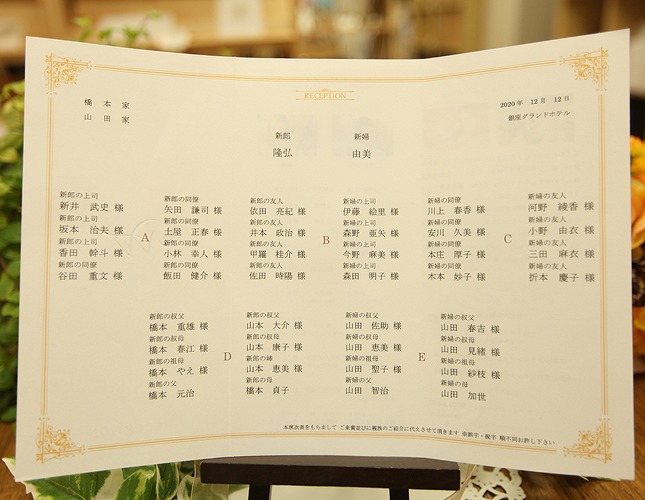 RECEPTION
橋本家
山田家
2020年 12月 12日
銀座グランドホテル
新郎
隆弘
新婦
由美
新郎の上司
新井 武史 様
新郎の上司
坂本 治夫 様
新郎の上司
香田 幹斗 様
新郎の同僚
谷田 重文 様
A
新郎の同僚
矢田 謙司 様
新郎の同僚
土屋 正春 様
新郎の同僚
小林 幸人 様
新郎の同僚
飯田 健介 様
新郎の友人
依田 亮紀 様
新郎の友人
井本 政治 様
新郎の友人
甲羅 桂介 様
新郎の友人
佐田 時陽 様
B
新婦の上司
伊藤 絵里 様
新婦の上司
森野 亜矢 様
新婦の上司
今野 麻美 様
新婦の上司
森田 明子 様
新婦の同僚
川上 春香 様
新婦の同僚
安川 久美 様
新婦の同僚
本庄 厚子 様
新婦の同僚
木本 妙子 様
C
新婦の友人
河野 綾香 様
新婦の友人
小野 由衣 様
新婦の友人
三田 麻衣 様
新婦の友人
折本 慶子 様
新郎の叔父
橋本 重雄 様
新郎の叔母
橋本 春江 様
新郎の祖母
橋本 やえ 様
新郎の父
橋本 元治
D
新郎の叔父
山本 大介 様
新郎の叔母
山本 康子 様
新郎の姉
山本 恵美 様
新郎の母
橋本 貞子
新婦の叔父
山田 佐助 様
新婦の叔母
山田 恵美 様
新婦の祖母
山田 聖子 様
新婦の父
山田 智治
E
新婦の叔父
山田 春吉 様
新婦の叔母
山田 見緒 様
新婦の祖母
山田 紗枝 様
新婦の母
山田 加世
本席次表をもちまして ご来賓並びに親族のご紹介に代えさせて頂きます ※誤字・脱字 順不同お許し下さい